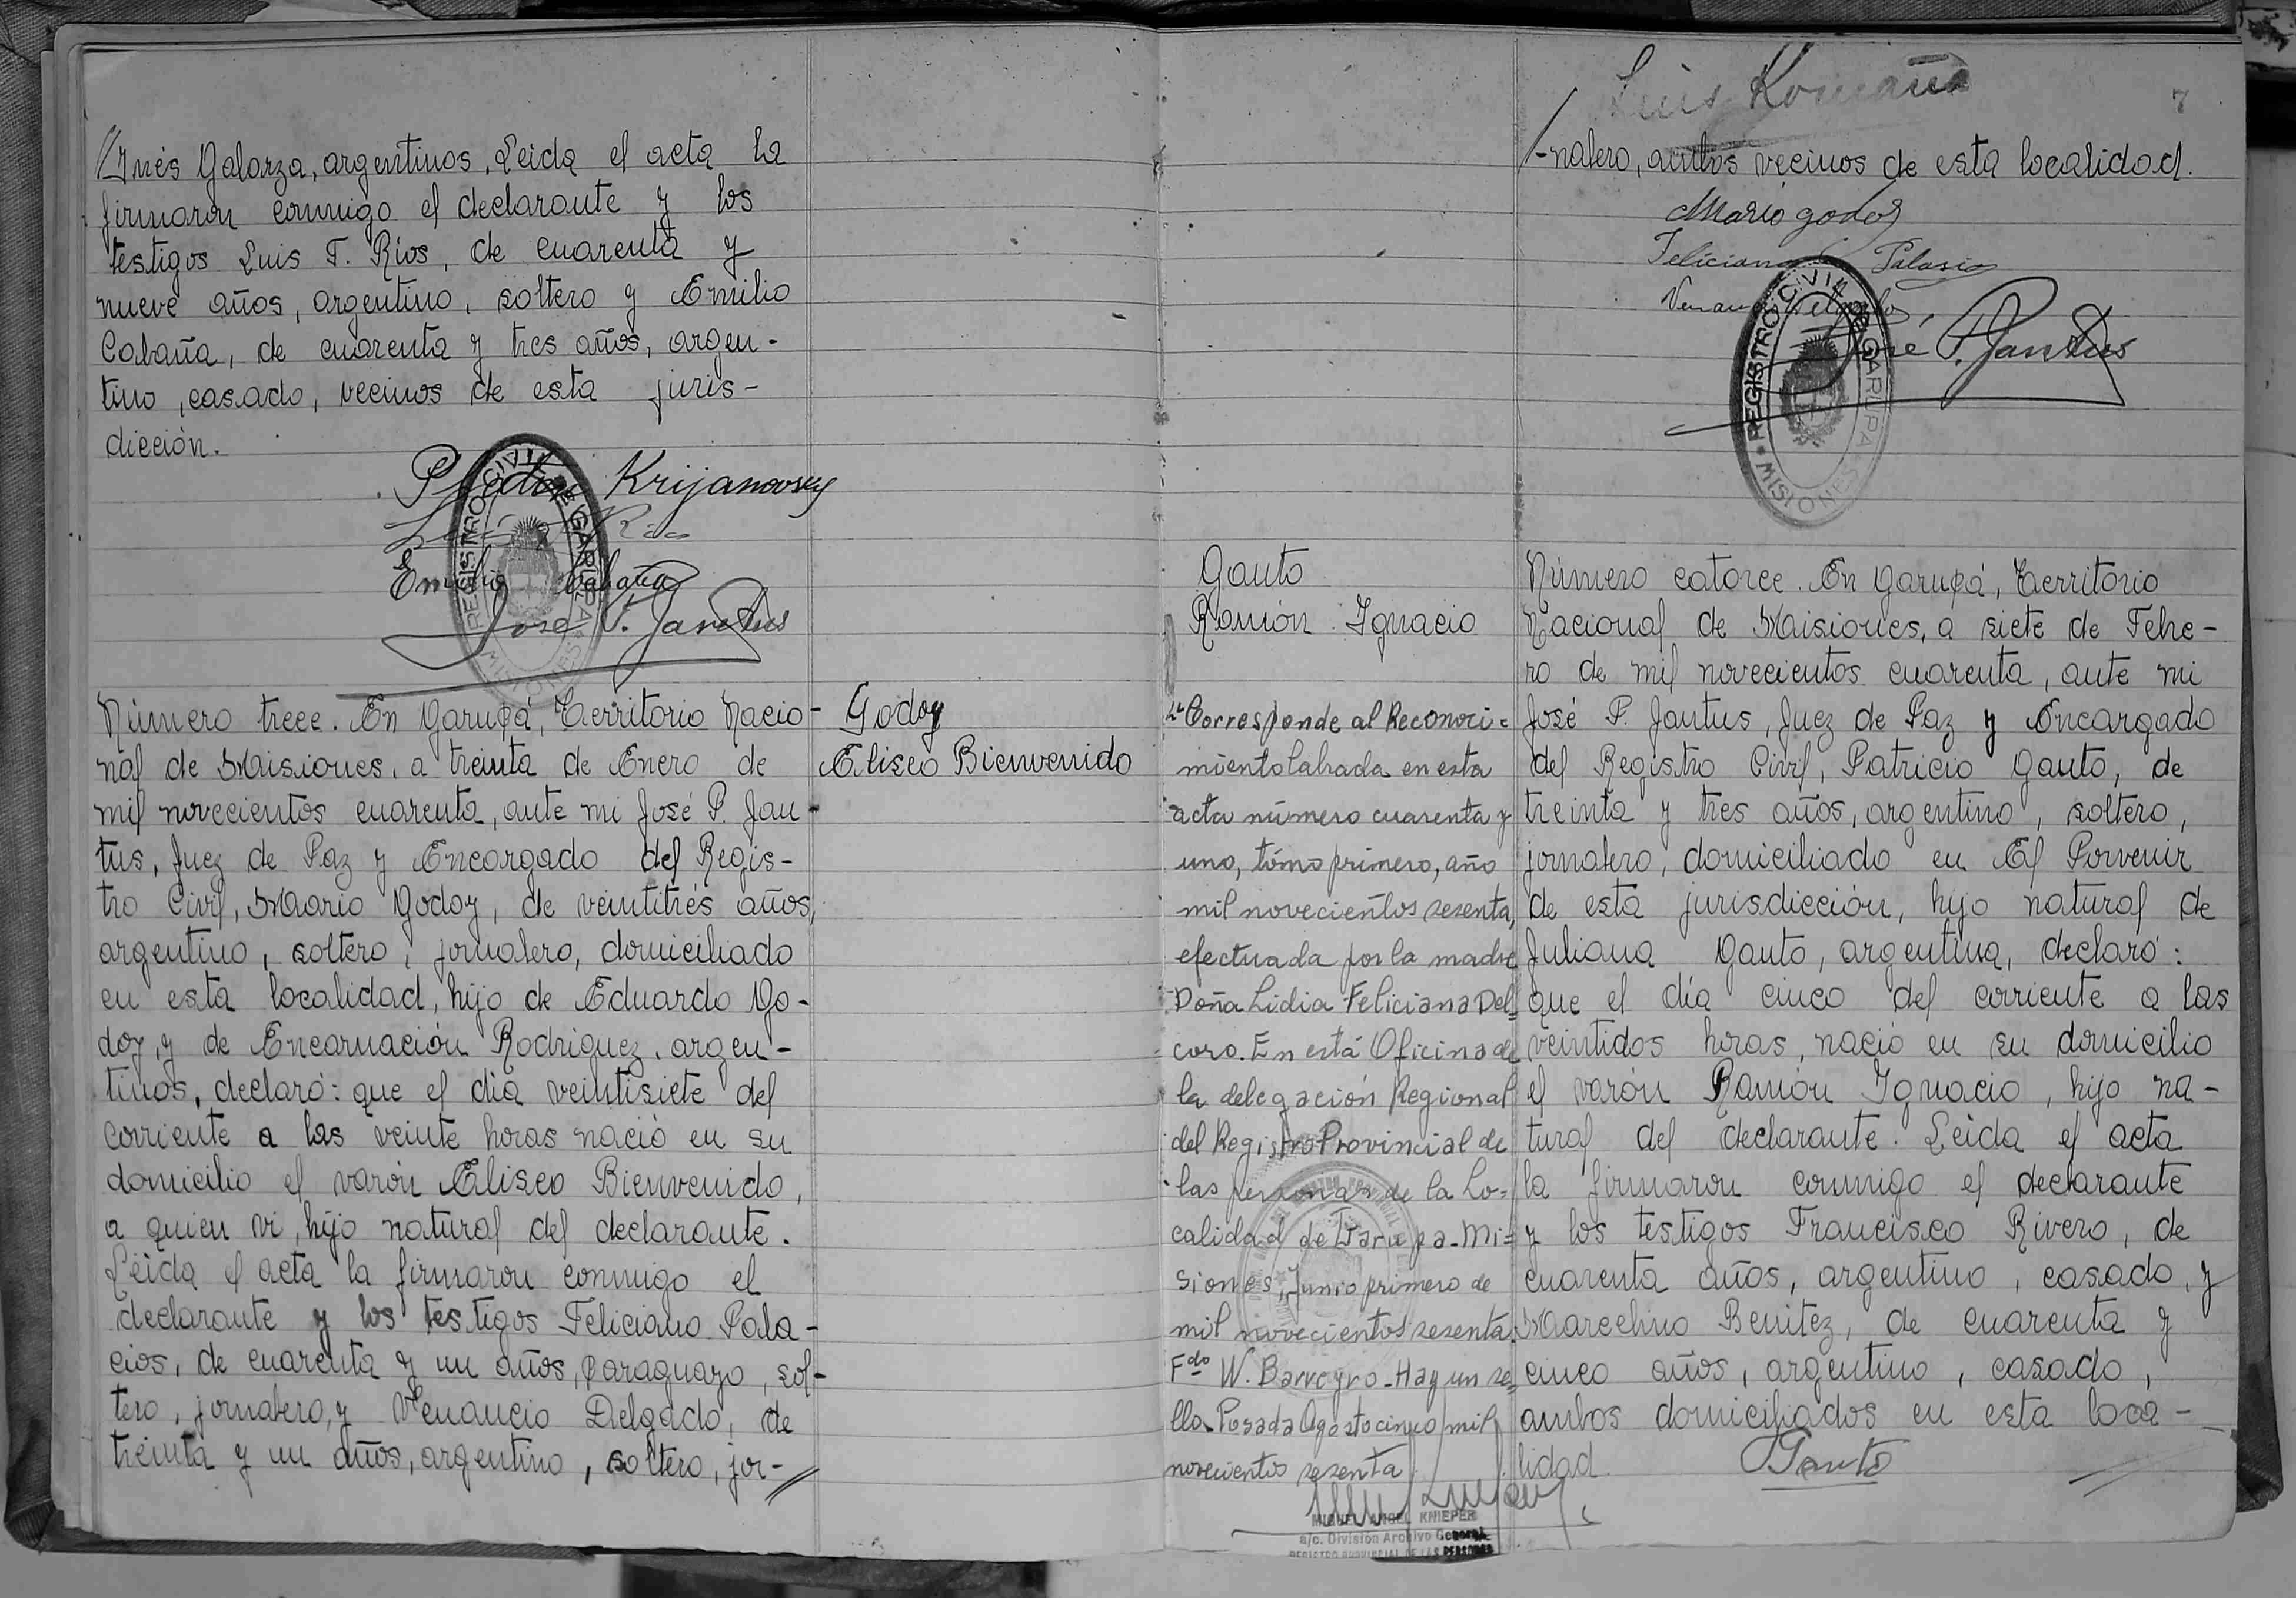 Inés Galarza, argentinos, Leida el acta la
firmaron conmigo el declarante y los
testigos Luis T. Ríos, de cuarenta y
nueve años, argentino, soltero y Emilio
Cabaña, de cuarenta y tres años, argen-
tino, casado, vecinos de esta juris-
dicción.
Krijanovsky
Emilio Cabaña
José P. Jantus
REGISTRO CIVIL DE GARUPA
MISIONES
Número trece. En Garupá, Territorio Nacio-
nal de Misiones, a treinta de Enero de
mil novecientos cuarenta, ante mi José P. Jan-
tus, Juez de Paz y Encargado del Regis-
tro Civil, Mario Godoy, de veintitrés años,
argentino, soltero, jornalero, domiciliado
en esta localidad, hijo de Eduardo Go-
doy, y de Encarnación Rodriguez, argen-
tinos, declaró: que el día veintisiete del
corriente a las veinte horas nació en su
domicilio el varón Eliseo Bienvenido,
a quien vi, hijo natural del declarante.
Leida el acta la firmaron conmigo el
declarante y los testigos Feliciano Pala-
cios, de cuarenta y un años, paraguayo, sol-
tero, jornalero, y Venancio Delgado, de
treinta y un años, argentino, soltero, jor-//
Godoy
Eliseo Bienvenido
Luis Romaña
7
/-nalero, ambos vecinos de esta localidad.
Mario godoy
Feliciano Palasio
José P. Jantus
REGISTRO CIVIL DE GARUPA
MISIONES
Gauto
Ramón Ignacio
Corresponde al Reconoci=
miento labrada en esta
acta número cuarenta y
uno, tómo primero, año
mil novecientos sesenta,
efectuada por la madre
Doña Lidia Feliciana Del=
coro. En está Oficina de
la delegación Regional
del Registro Provincial de
las personas de la Lo=
calidad de Garupa-Mi=
siones, Junio primero de
mil novecientos sesenta.
Fdo W. Barreyro-Hay un se=
llo. Posada Agosto cinco mil
novecientos sesenta
MIGUEL ANGEL KNIEPER
a/c. División Archivo General
REGISTRO PROVINCIAL DE LAS PERSONAS
Número catorce. En Garupá, Territorio
Nacional de Misiones, a siete de Febre-
ro de mil novecientos cuarenta, ante mi
José P. Jantus, Juez de Paz y Encargado
del Registro Civil, Patricio Gauto, de
treinta y tres años, argentino, soltero,
jornalero, domiciliado en El Porvenir
de esta jurisdicción, hijo natural de
Juliana Gauto, argentina, declaró:
que el día cinco del corriente a las
veintidos horas, nació en su domicilio
el varón Ramón Ignacio, hijo na-
tural del declarante. Leida el acta
la firmaron conmigo el declarante
y los testigos Francisco Rivero, de
cuarenta años, argentino, casado, y
Marcelino Benitez, de cuarenta y
cinco años, argentino, casado,
ambos domiciliados en esta loca-
lidad.
Gauto